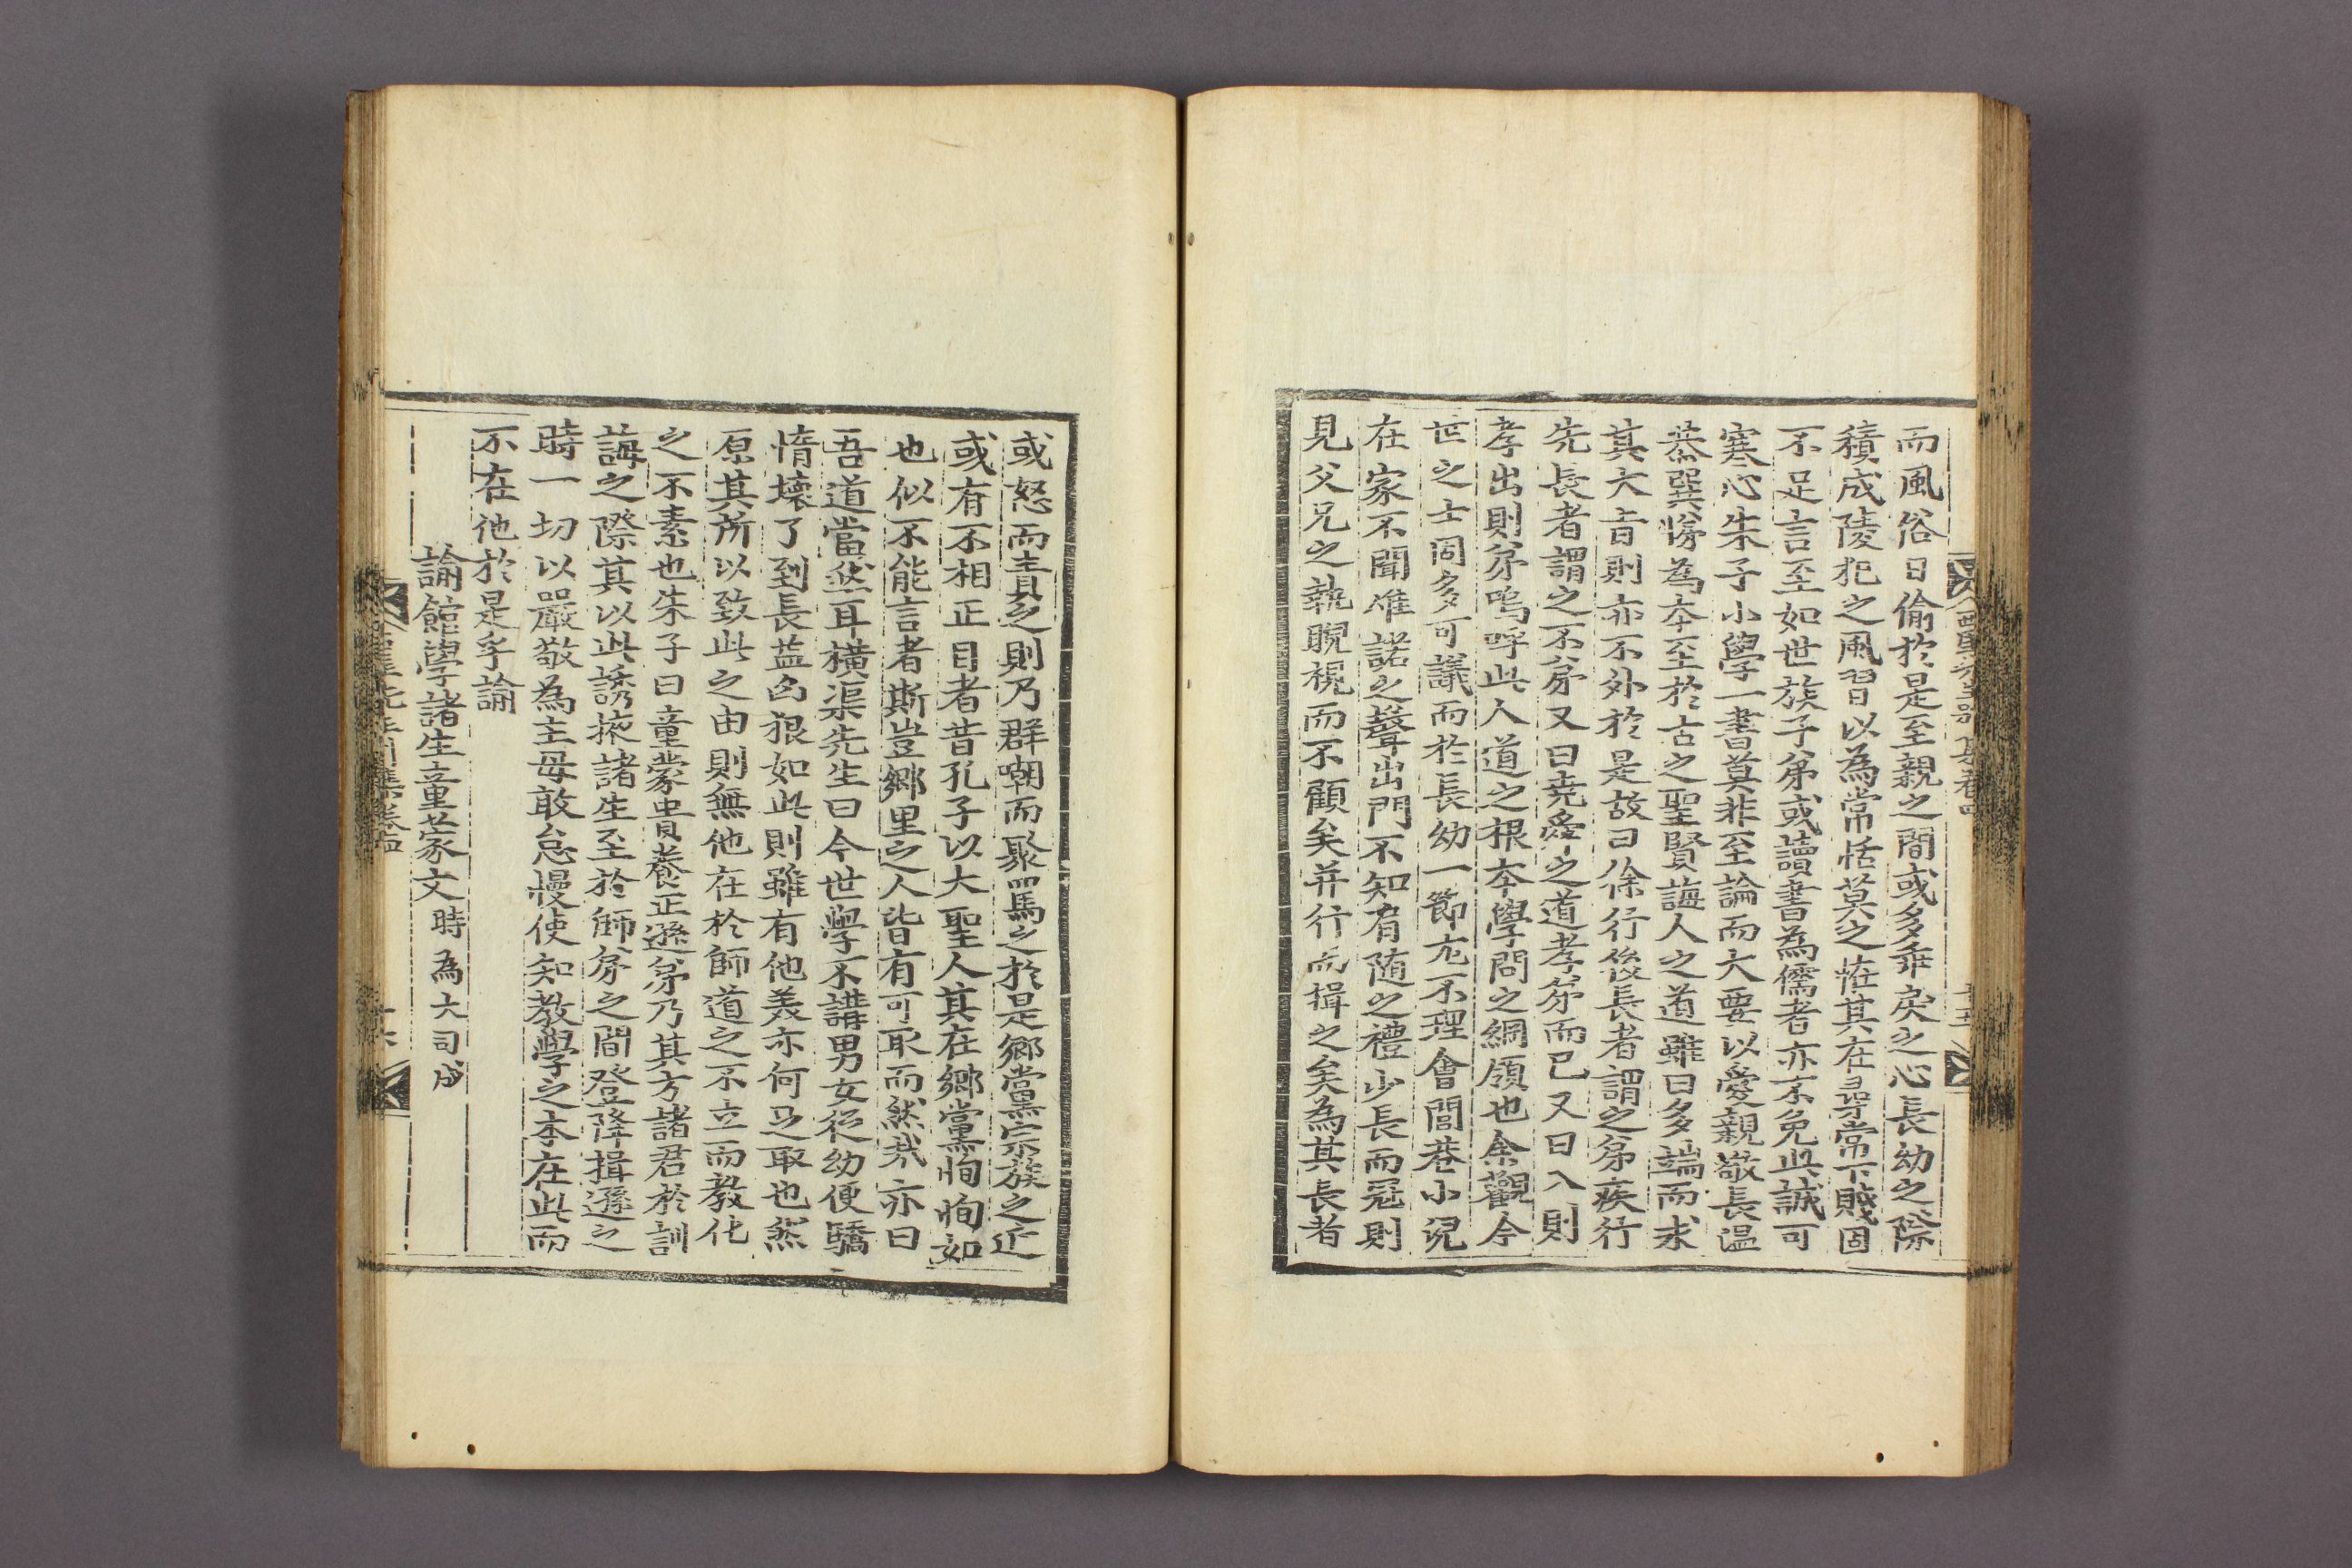 而風俗日偷於是至親之間或多乖戾之心長幼之際
積成陵犯之風習以為常恬莫之恠其在尋常下賤固
不足言至如世族子弟或讀書為儒者亦不免此誠可
寒心朱子小學一書莫非至論而大要以愛親敬長溫
恭巽悌為本至於古之聖賢誨人之道雖曰多端而求
其大旨則亦不外於是故曰徐行後長者謂之弟疾行
先長者謂之不弟又曰堯舜之道孝弟而已又曰入則
孝出則弟嗚呼此人道之根本學問之綱領也余觀今
世之士固多可議而於長幼一節尤不理會閭巷小児
在家不聞唯諾之聲出門不知肩随之禮少長而冠則
見父兄之執睨視而不顧矣并行而揖之矣為其長者
或怒而責之則乃群嘲而聚罵之於是鄉黨宗族之近
或有不相正目者昔孔子以大聖人其在鄉黨恂恂如
也似不能言者斯豈鄉里之人皆有可取而然哉亦曰
吾道當然耳橫渠先生曰今世學不講男女從幼便驕
惰壞了到長益凶狠如此則雖有他美亦何足取也然
原其所以致此之由則無他在於師道之不立而教化
之不素也朱子曰童蒙貴養正遜弟乃其方諸君於訓
誨之際其以此誘掖諸生至於師弟之間登降揖遜之
時一切以嚴敬為主毋敢怠慢使知教學之本在此而
不在他於是乎諭
諭館學諸生童蒙文 時為大司成